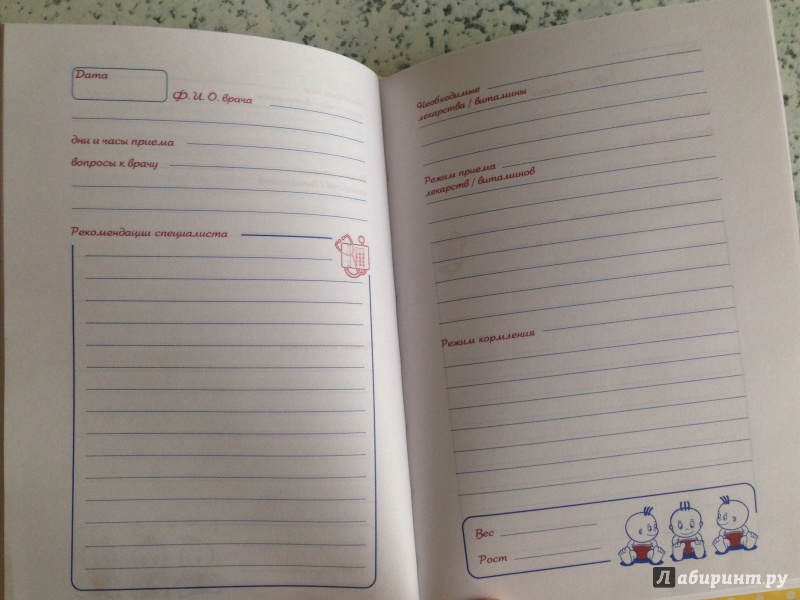 Дата
Ф. И. О. врача
дни и часы приема
вопросы к врачу
Рекомендации специалиста
Необходимые
лекарства / витамины
Режим приема
лекарств / витаминов
Режим кормления
Вес
Рост
Лабиринт.ру